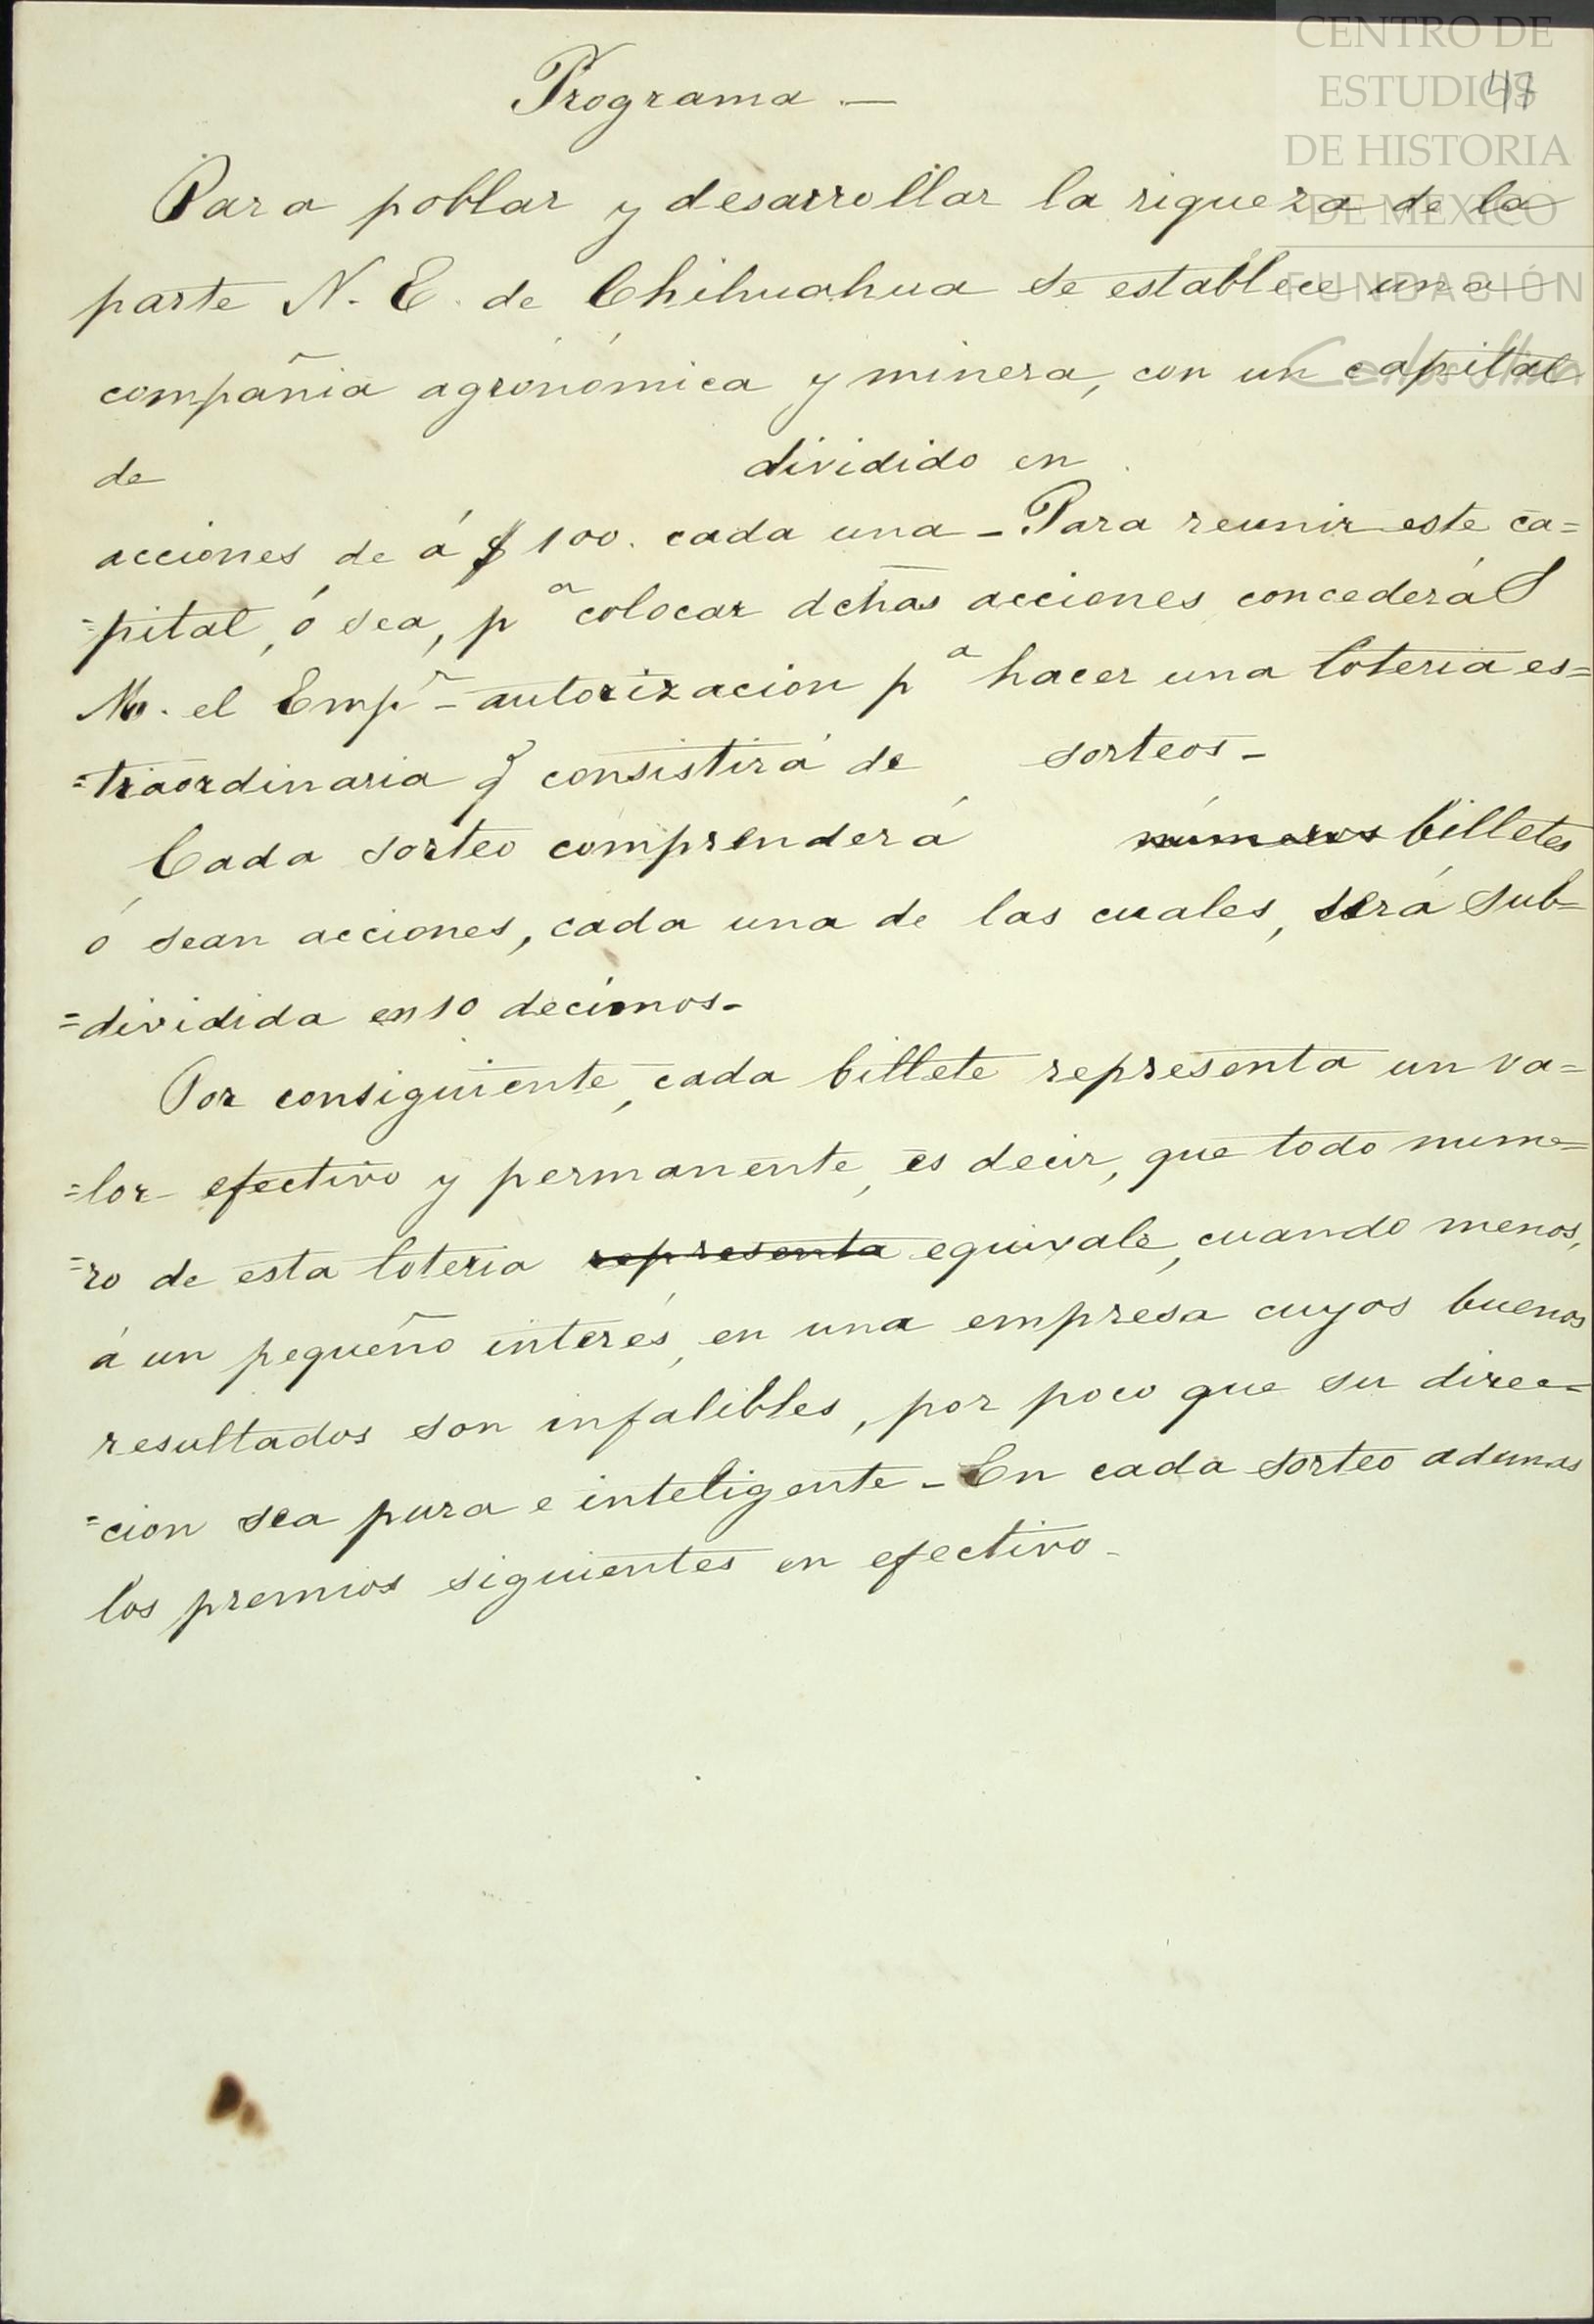 CENTRO DE
ESTUDIOS
DE HISTORIA
DE MEXICO
FUNDACIÓN
Carlos Slim
47
Programa —
Para poblar y desarrollar la riqueza de la
parte N. E. de Chihuahua se establece una
compañia agronómica y minera, con un capital
de dividido en
acciones de á $100. cada una – Para reunir este ca=
=pital, ó sea, pª colocar dchas acciones concederá S
M. el Empr – autorizacion pª hacer una loteria es=
=traordinaria q consistirá de sorteos –
Cada sorteo comprenderá números billetes
ó sean acciones, cada una de las cuales, será sub=
=dividida en 10 decimos –
Por consiguiente, cada billete representa un va=
=lor efectivo y permanente, es decir, que todo nume=
=ro de esta loteria representa equivale, cuando menos,
á un pequeño interés, en una empresa cuyos buenos
resultados son infalibles, por poco que su direc=
=cion sea pura e inteligente – En cada sorteo ademas
los premios siguientes en efectivo –